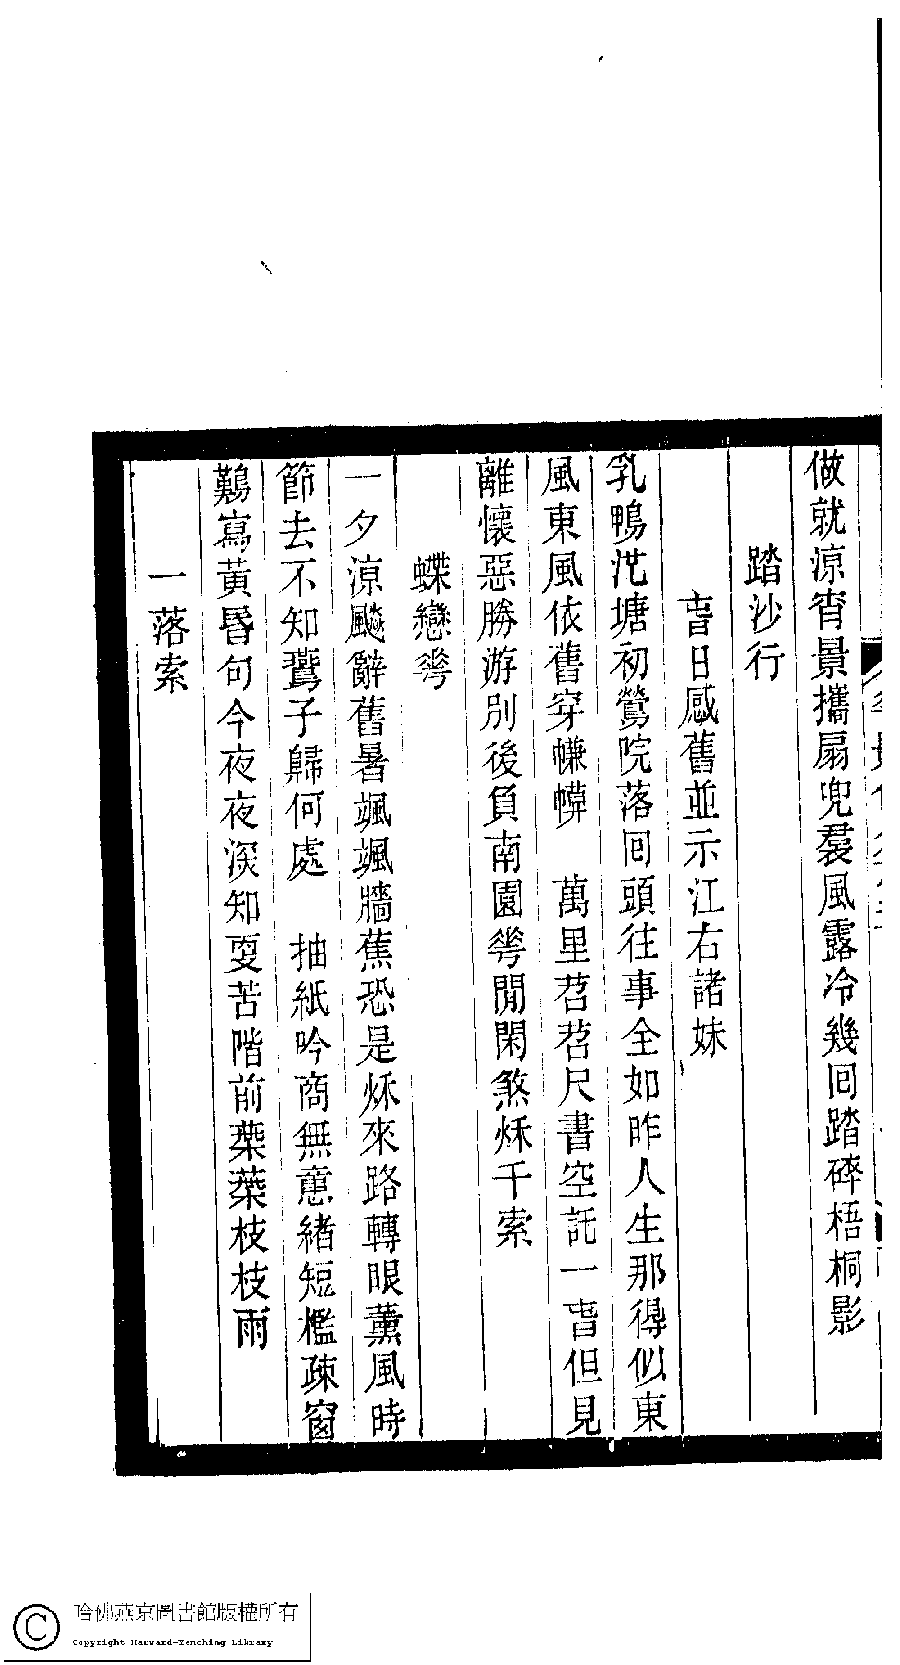 做就涼宵景攜扇兜羣風露冷幾回踏碎梧桐影
踏沙行
旾日感舊並示江右諸妹
乳鴨池塘初鶯院落回頭往事全如昨人生那得似東
風東風依舊穿㡘幙　萬里苕苕尺書空託一旾但見
離懷惡勝游別後負南園蕐閒閑煞秌千索
蝶戀蕐
一夕涼飈辭舊暑颯颯牆蕉恐是秌來路轉眼薰風時
節去不知鷰子歸何處　抽紙吟商無意緒短檻疎窗
鷬寫黃昬句今夜夜深知更苦階前葉葉枝枝雨
一落索
哈佛燕京圖書館版權所有
Copyright Harvard-Yenching Library